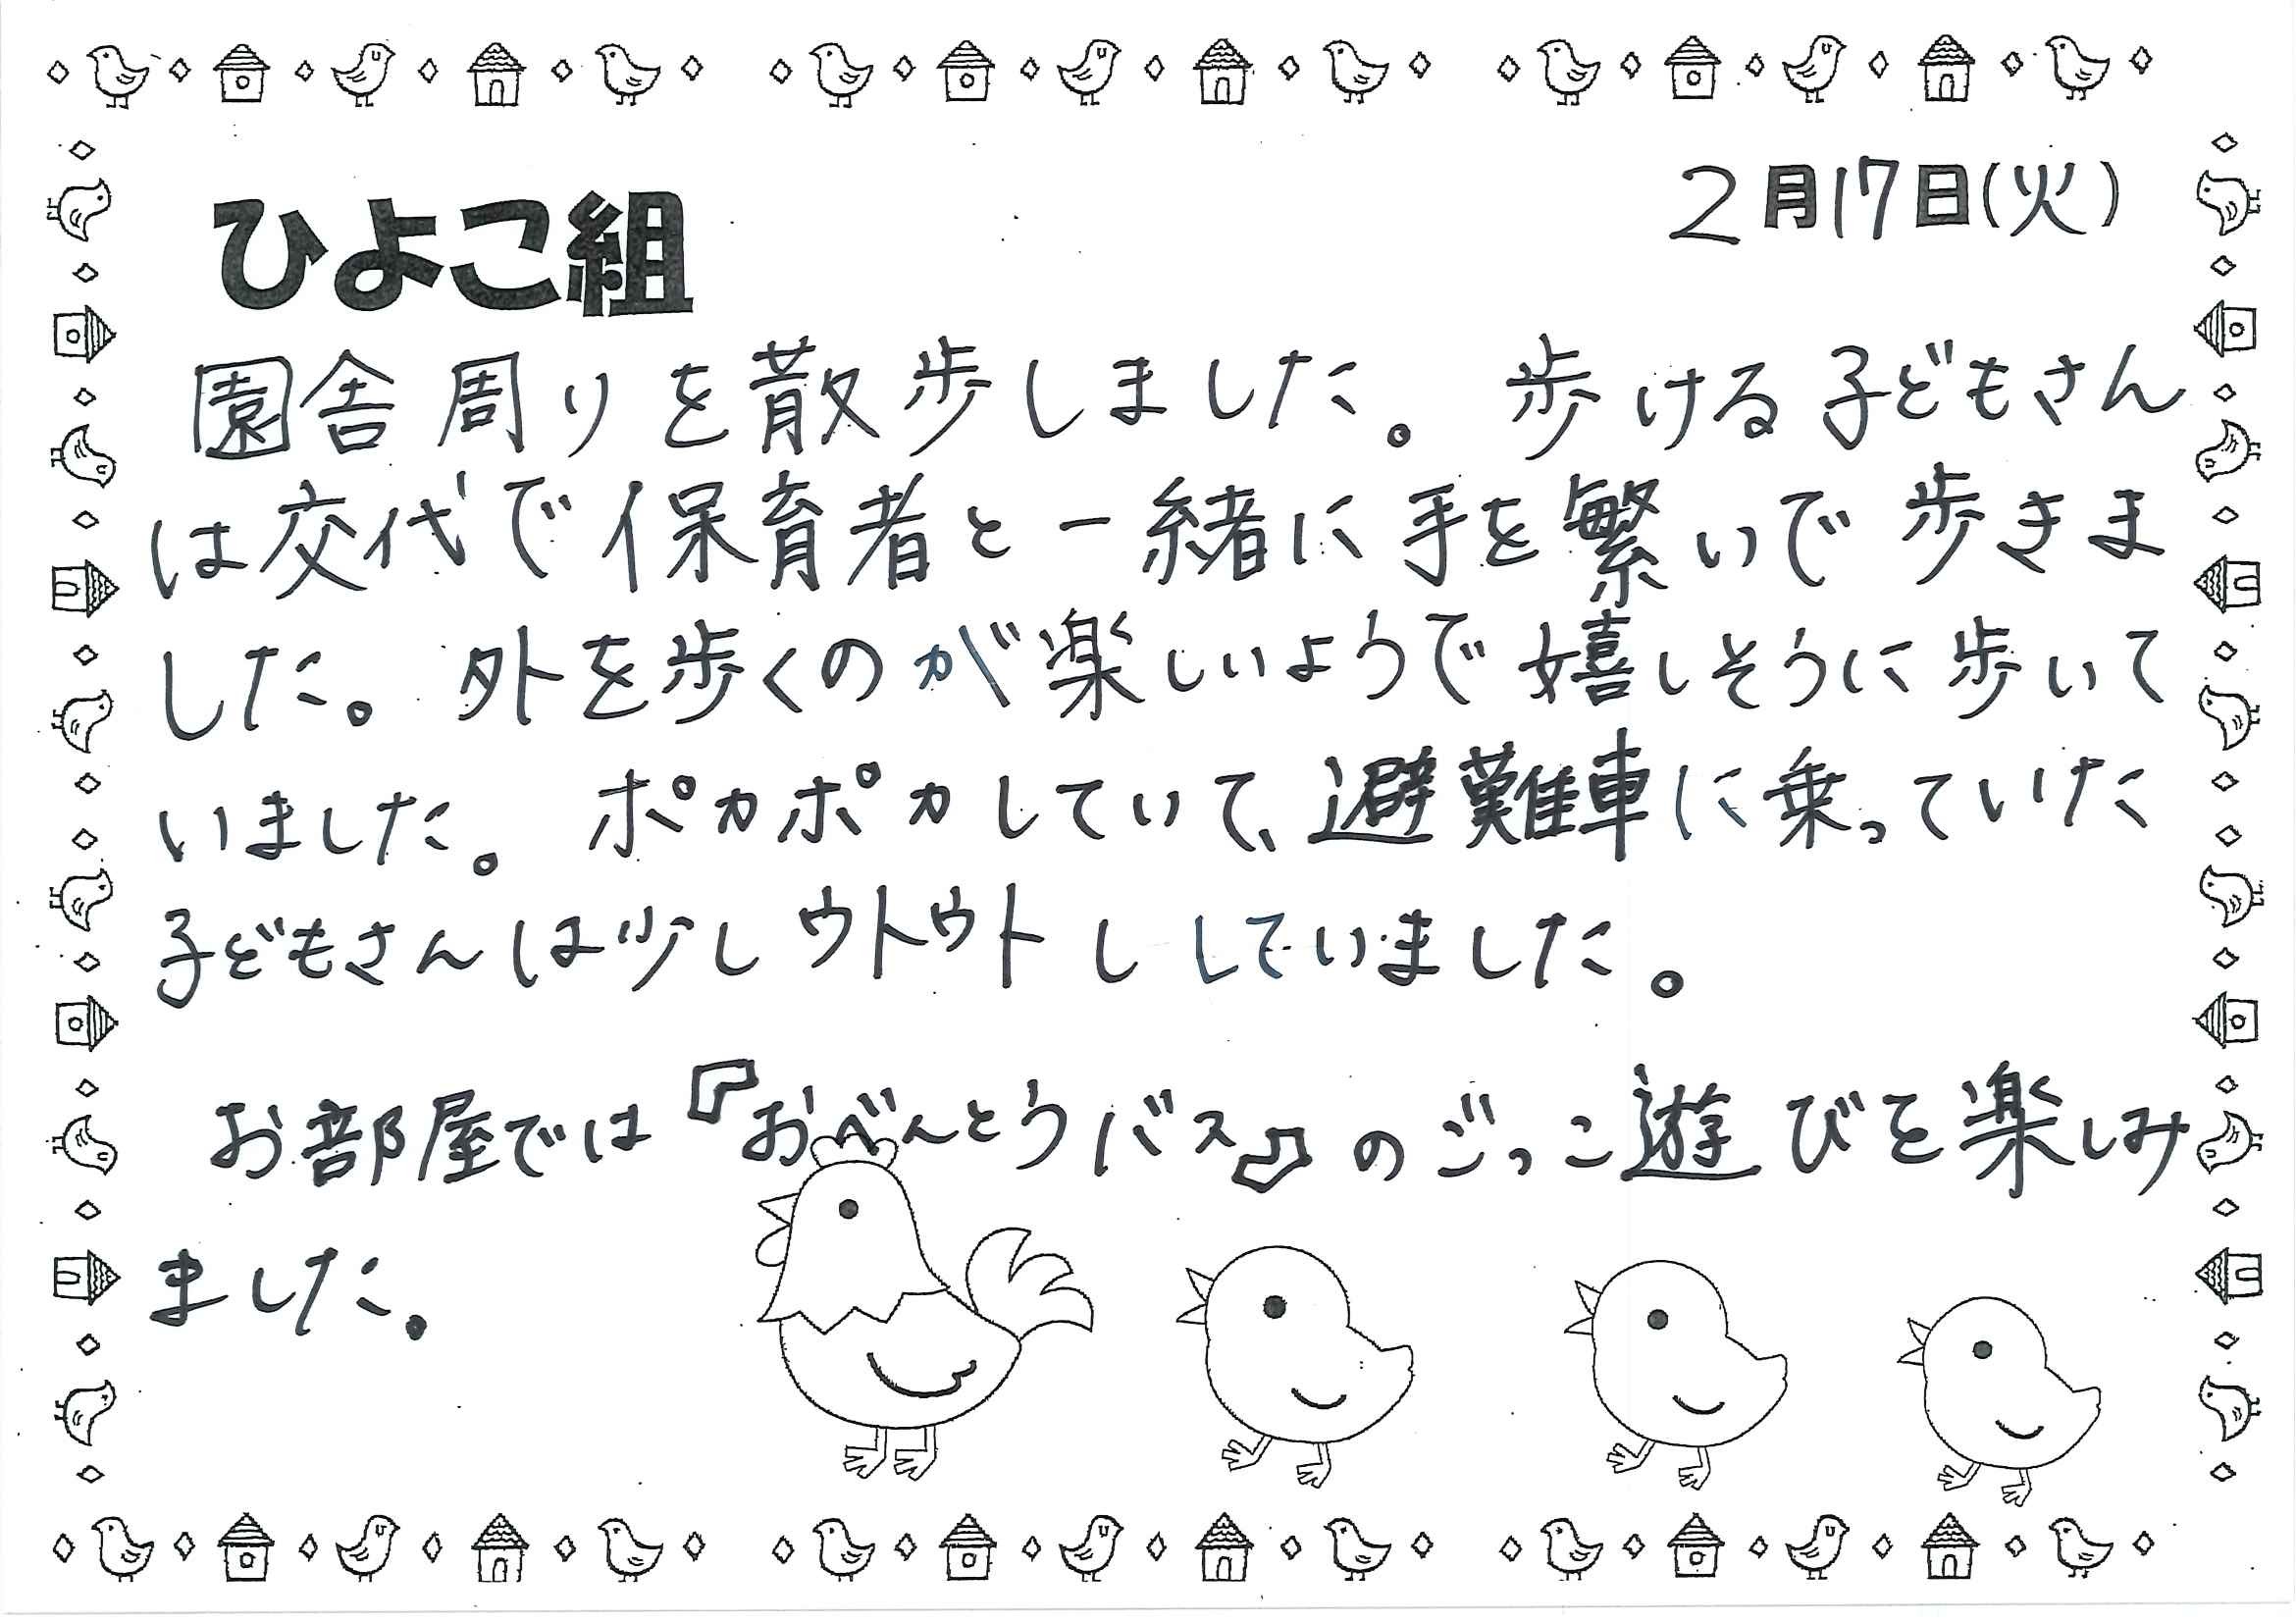 2月17日(火)
ひよこ組
園舎周りを散歩しました。歩ける子どもさん
は交代で保育者と一緒に手を繋いで歩きま
した。外を歩くのが楽しいようで嬉しそうに歩いて
いました。ポカポカしていて、避難車に乗っていた
子どもさんは少しウトウトしていました。
お部屋では『おべんとうバス』のごっこ遊びを楽しみ
ました。